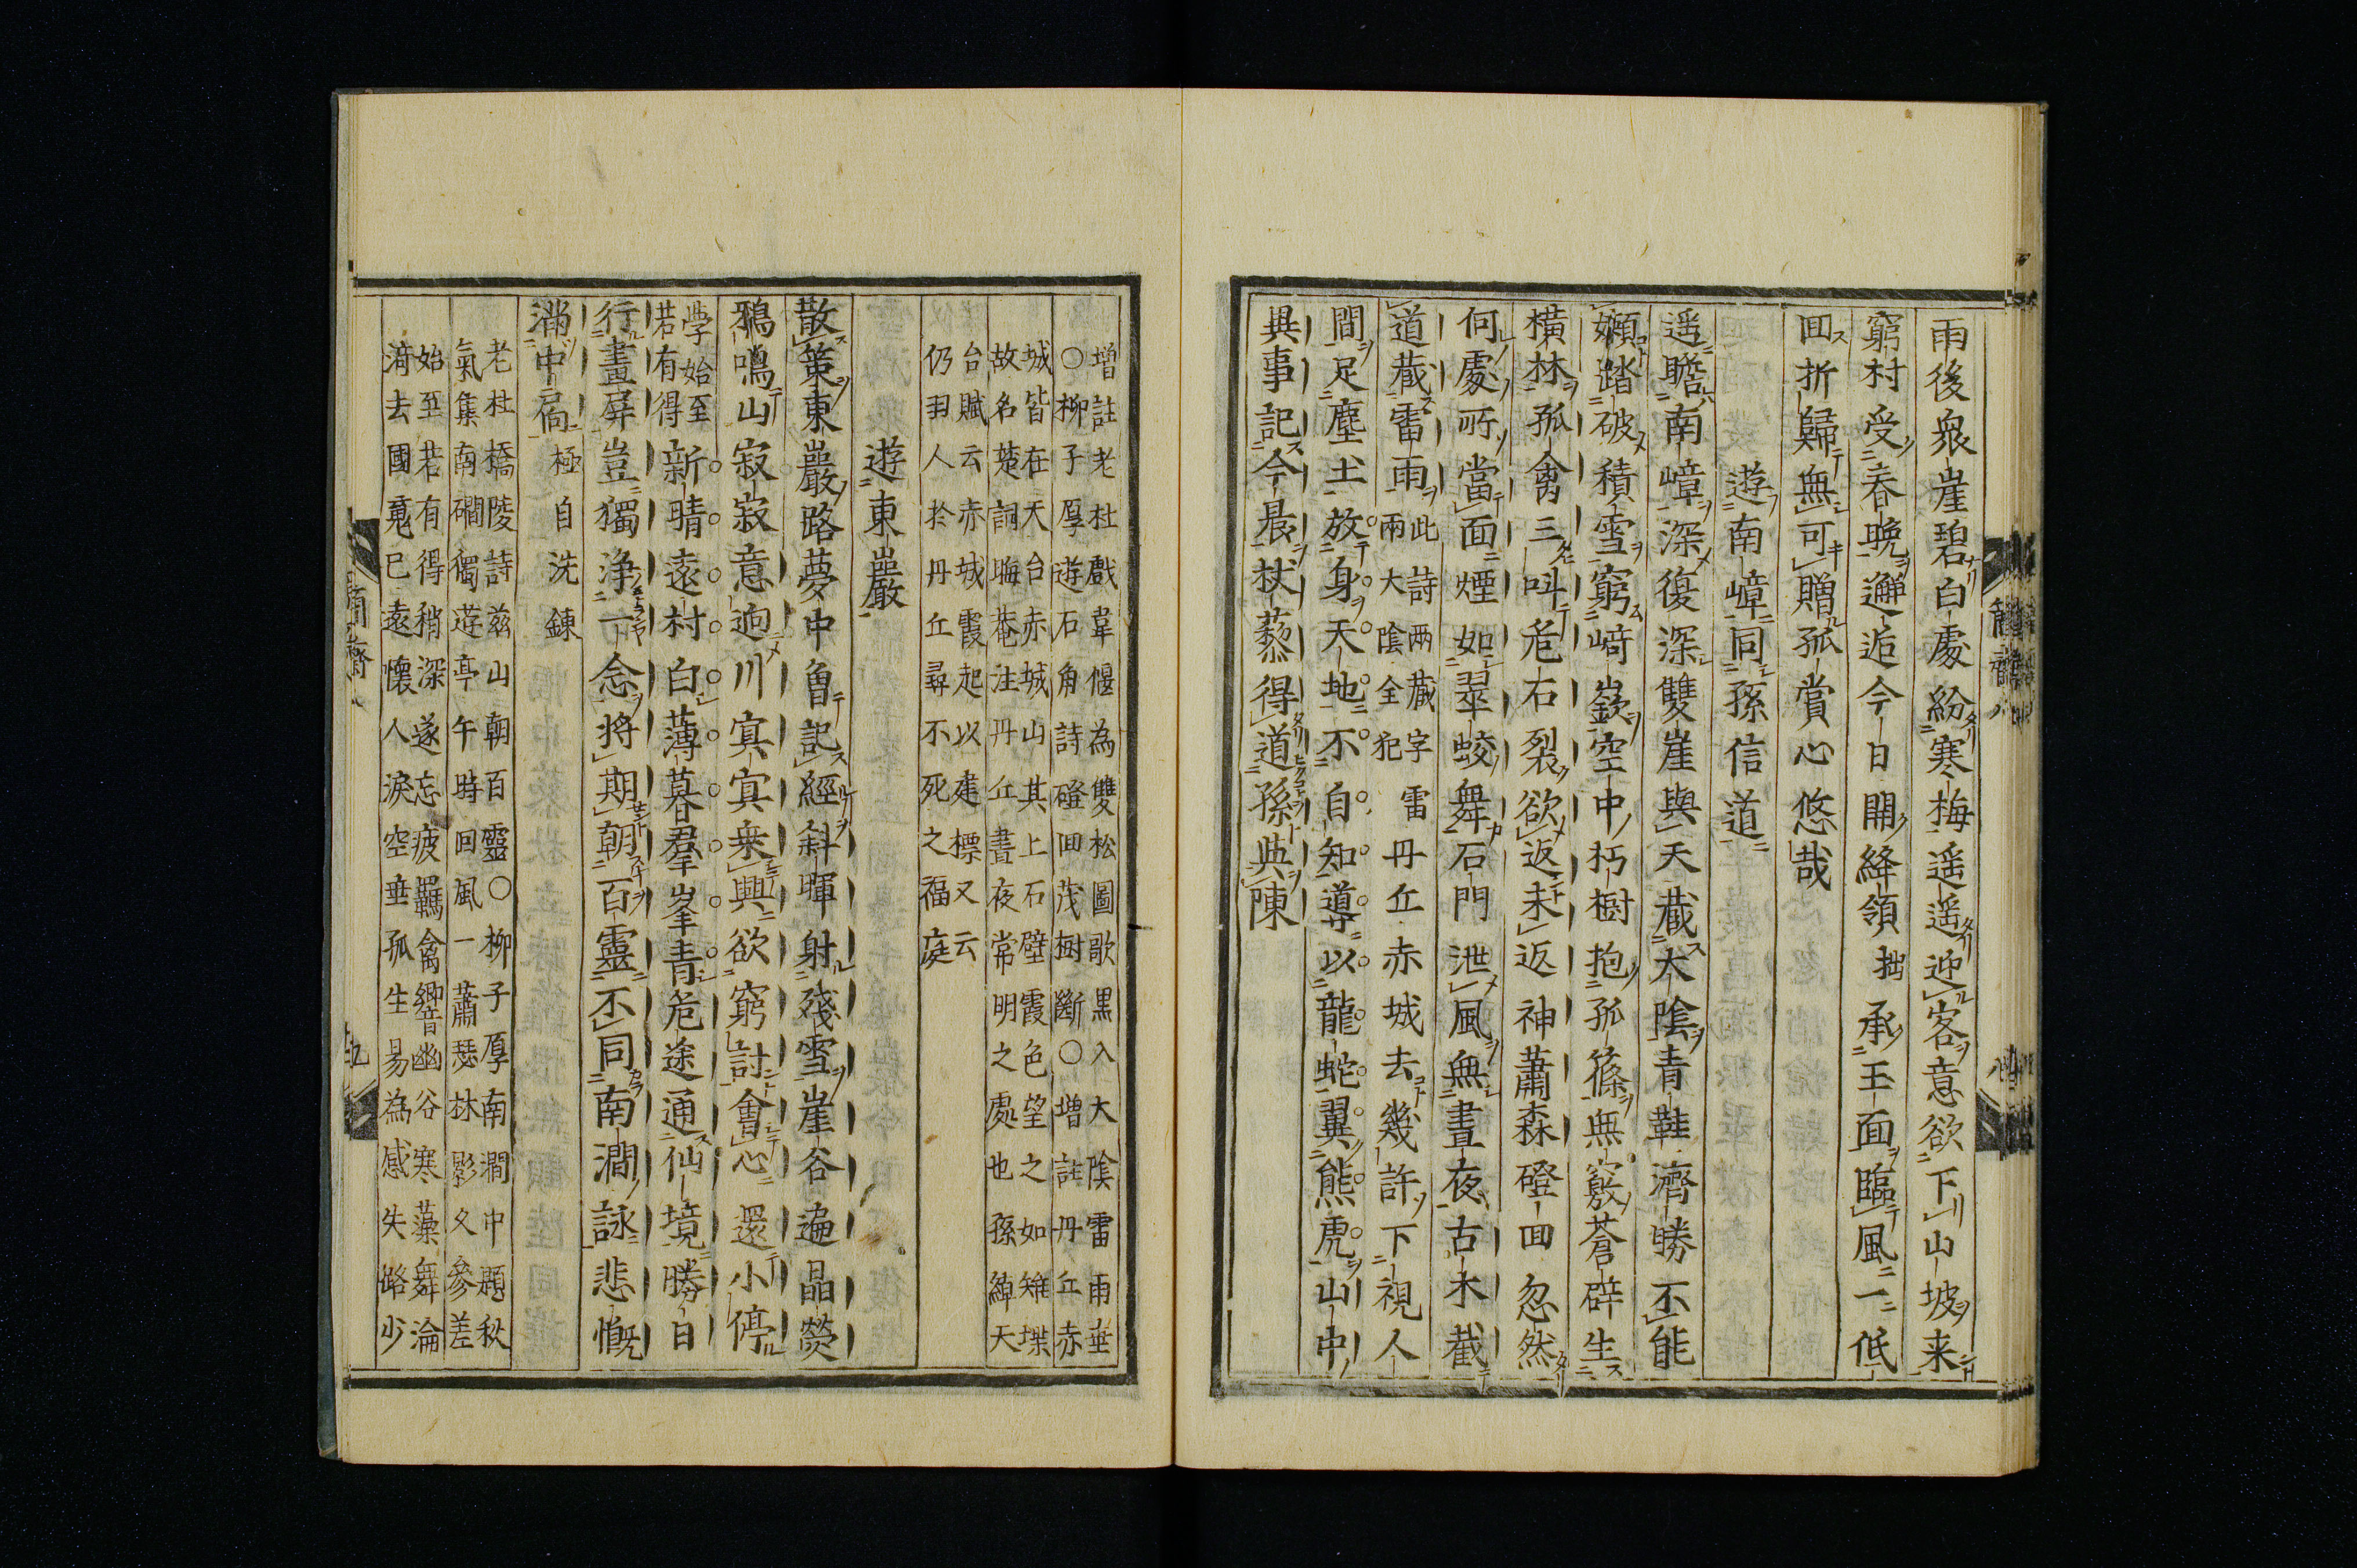 雨後衆崖碧白處紛寒梅遥遥迎客意欲下山坡来
窮村受春晩邂逅今日開絳領拙承王面臨風一低
回折歸無可贈孤賞心悠哉
遊南嶂同孫信道
遥瞻南嶂深復深雙崖與天藏太陰青鞋濟勝不能
嬾踏破積雪窮崎嶔空中朽樹抱孤篠無竅蒼辟生
横林孤禽三叫危石裂欲返未返神蕭森磴回忽然
何處所當面煙如翠蛟舞石門泄風無晝夜古木截
道藏雷雨此詩兩藏字
兩大陰全犯雷丹丘赤城去幾許下視人
間足塵土放身天地不自知導以龍蛇翼熊虎山中
異事記今晨杖藜得道孫與陳
増註老杜戲韋偃為雙松圖歌黒入大陰雷雨垂
○柳子厚遊石角詩磴回茂樹斷○増註丹丘赤
城皆在天台赤城山其上石壁霞色望之如雉堞
故名楚詞晦菴注丹丘晝夜常明之處也孫綽天
台賦云赤城霞起以建標又云
仍羽人於丹丘尋不死之福庭
遊東巖
散策東巖路夢中曽記經斜暉射殘雪崖谷遍晶熒
鴉鳴山寂寂意迥川寘寘乗興欲窮討會心還小停
學始至
若有得新晴遠村白薄暮羣峯青危途通仙境勝日
行畫屏豈獨浄一念將期朝百靈丕同南澗詠悲慨
滿中扃極自洗錬
老杜橋陵詩兹山朝百靈○柳子厚南澗中題秋
氣集南磵獨遊亭午時回風一蕭瑟林影久參差
始至若有得稍深遂忘疲羈禽響幽谷寒藻舞淪
漪去國䰟已遠懷人淚空垂孤生易為感失路少